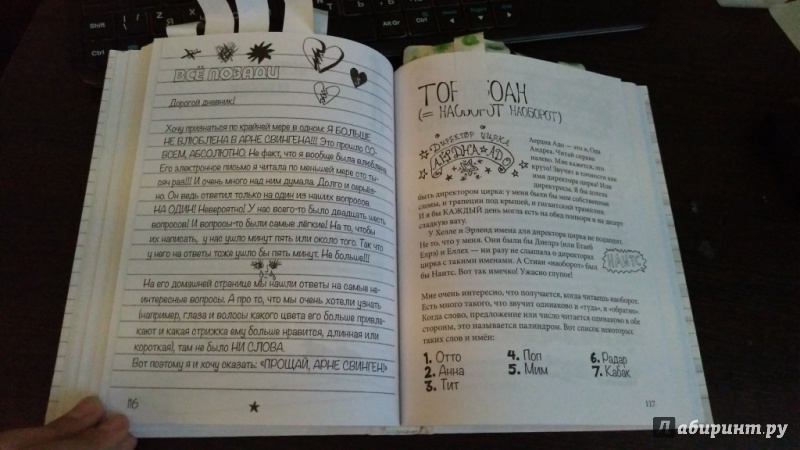 Shift
Ctrl
Alt
Alt Gr
Ctrl
ВСЁ ПОЗАДИ
Дорогой дневник!
Хочу признаться по крайней мере в одном: Я БОЛЬШЕ
НЕ ВЛЮБЛЕНА В АРНЕ СВИНГЕНА!!! Это прошло СО-
ВСЕМ, АБСОЛЮТНО. Не факт, что я вообще была влюблена.
Его электронное письмо я читала по меньшей мере сто ты-
сяч раз!!! И очень много над ним думала. Долго и серьёз-
но. Он ведь ответил только на один из наших вопросов.
НА ОДИН! Невероятно! У нас всего-то было двадцать шесть
вопросов! И вопросы-то были самые лёгкие! На то, чтобы
их написать, у нас ушло минут пять или около того. Так что
у него на ответы тоже ушло бы пять минут. Не больше!!!
На его домашней странице мы нашли ответы на самые не-
интересные вопросы. А про то, что мы очень хотели узнать
(например, глаза и волосы какого цвета его больше привле-
кают и какая стрижка ему больше нравится, длинная или
короткая), там не было НИ СЛОВА.
Вот поэтому я и хочу сказать: «ПРОЩАЙ, АРНЕ СВИНГЕН!»
116
(= НАОБОРОТ НАОБОРОТ)
ДИРЕКТОР ЦИРКА
АЕРДНА АДО
Аердна Адо — это я, Ода
Андреа. Читай справа
налево. Мне кажется, это
круто! Звучит в точности как
имя директора цирка! Или
директрисы. Я бы хотела
быть директором цирка: у меня были бы мои собственные
слоны, и трапеции под крышей, и гигантский трамплин.
И я бы КАЖДЫЙ день могла есть на обед попкорн и на десерт
сладкую вату.
У Хелле и Эрленд имена для директора цирка не подошли.
Не то, что у меня. Они были бы Днелрэ (или
Елрэ) и Еллех — ни разу не слышала о директорах
цирка с такими именами. А Стиан «наоборот» был
бы Наитс. Вот так имечко! Ужасно глупое!
НАИТС
Мне очень интересно, что получается, когда читаешь наоборот.
Есть много такого, что звучит одинаково и «туда», и «обратно».
Когда слово, предложение или число читается одинаково в обе
стороны, это называется палиндром. Вот список некоторых
таких слов и имён:
1. Отто
2. Анна
3. Тит
4. Поп
5. Мим
6. Радар
7. Кабак
117
Лабиринт.ру